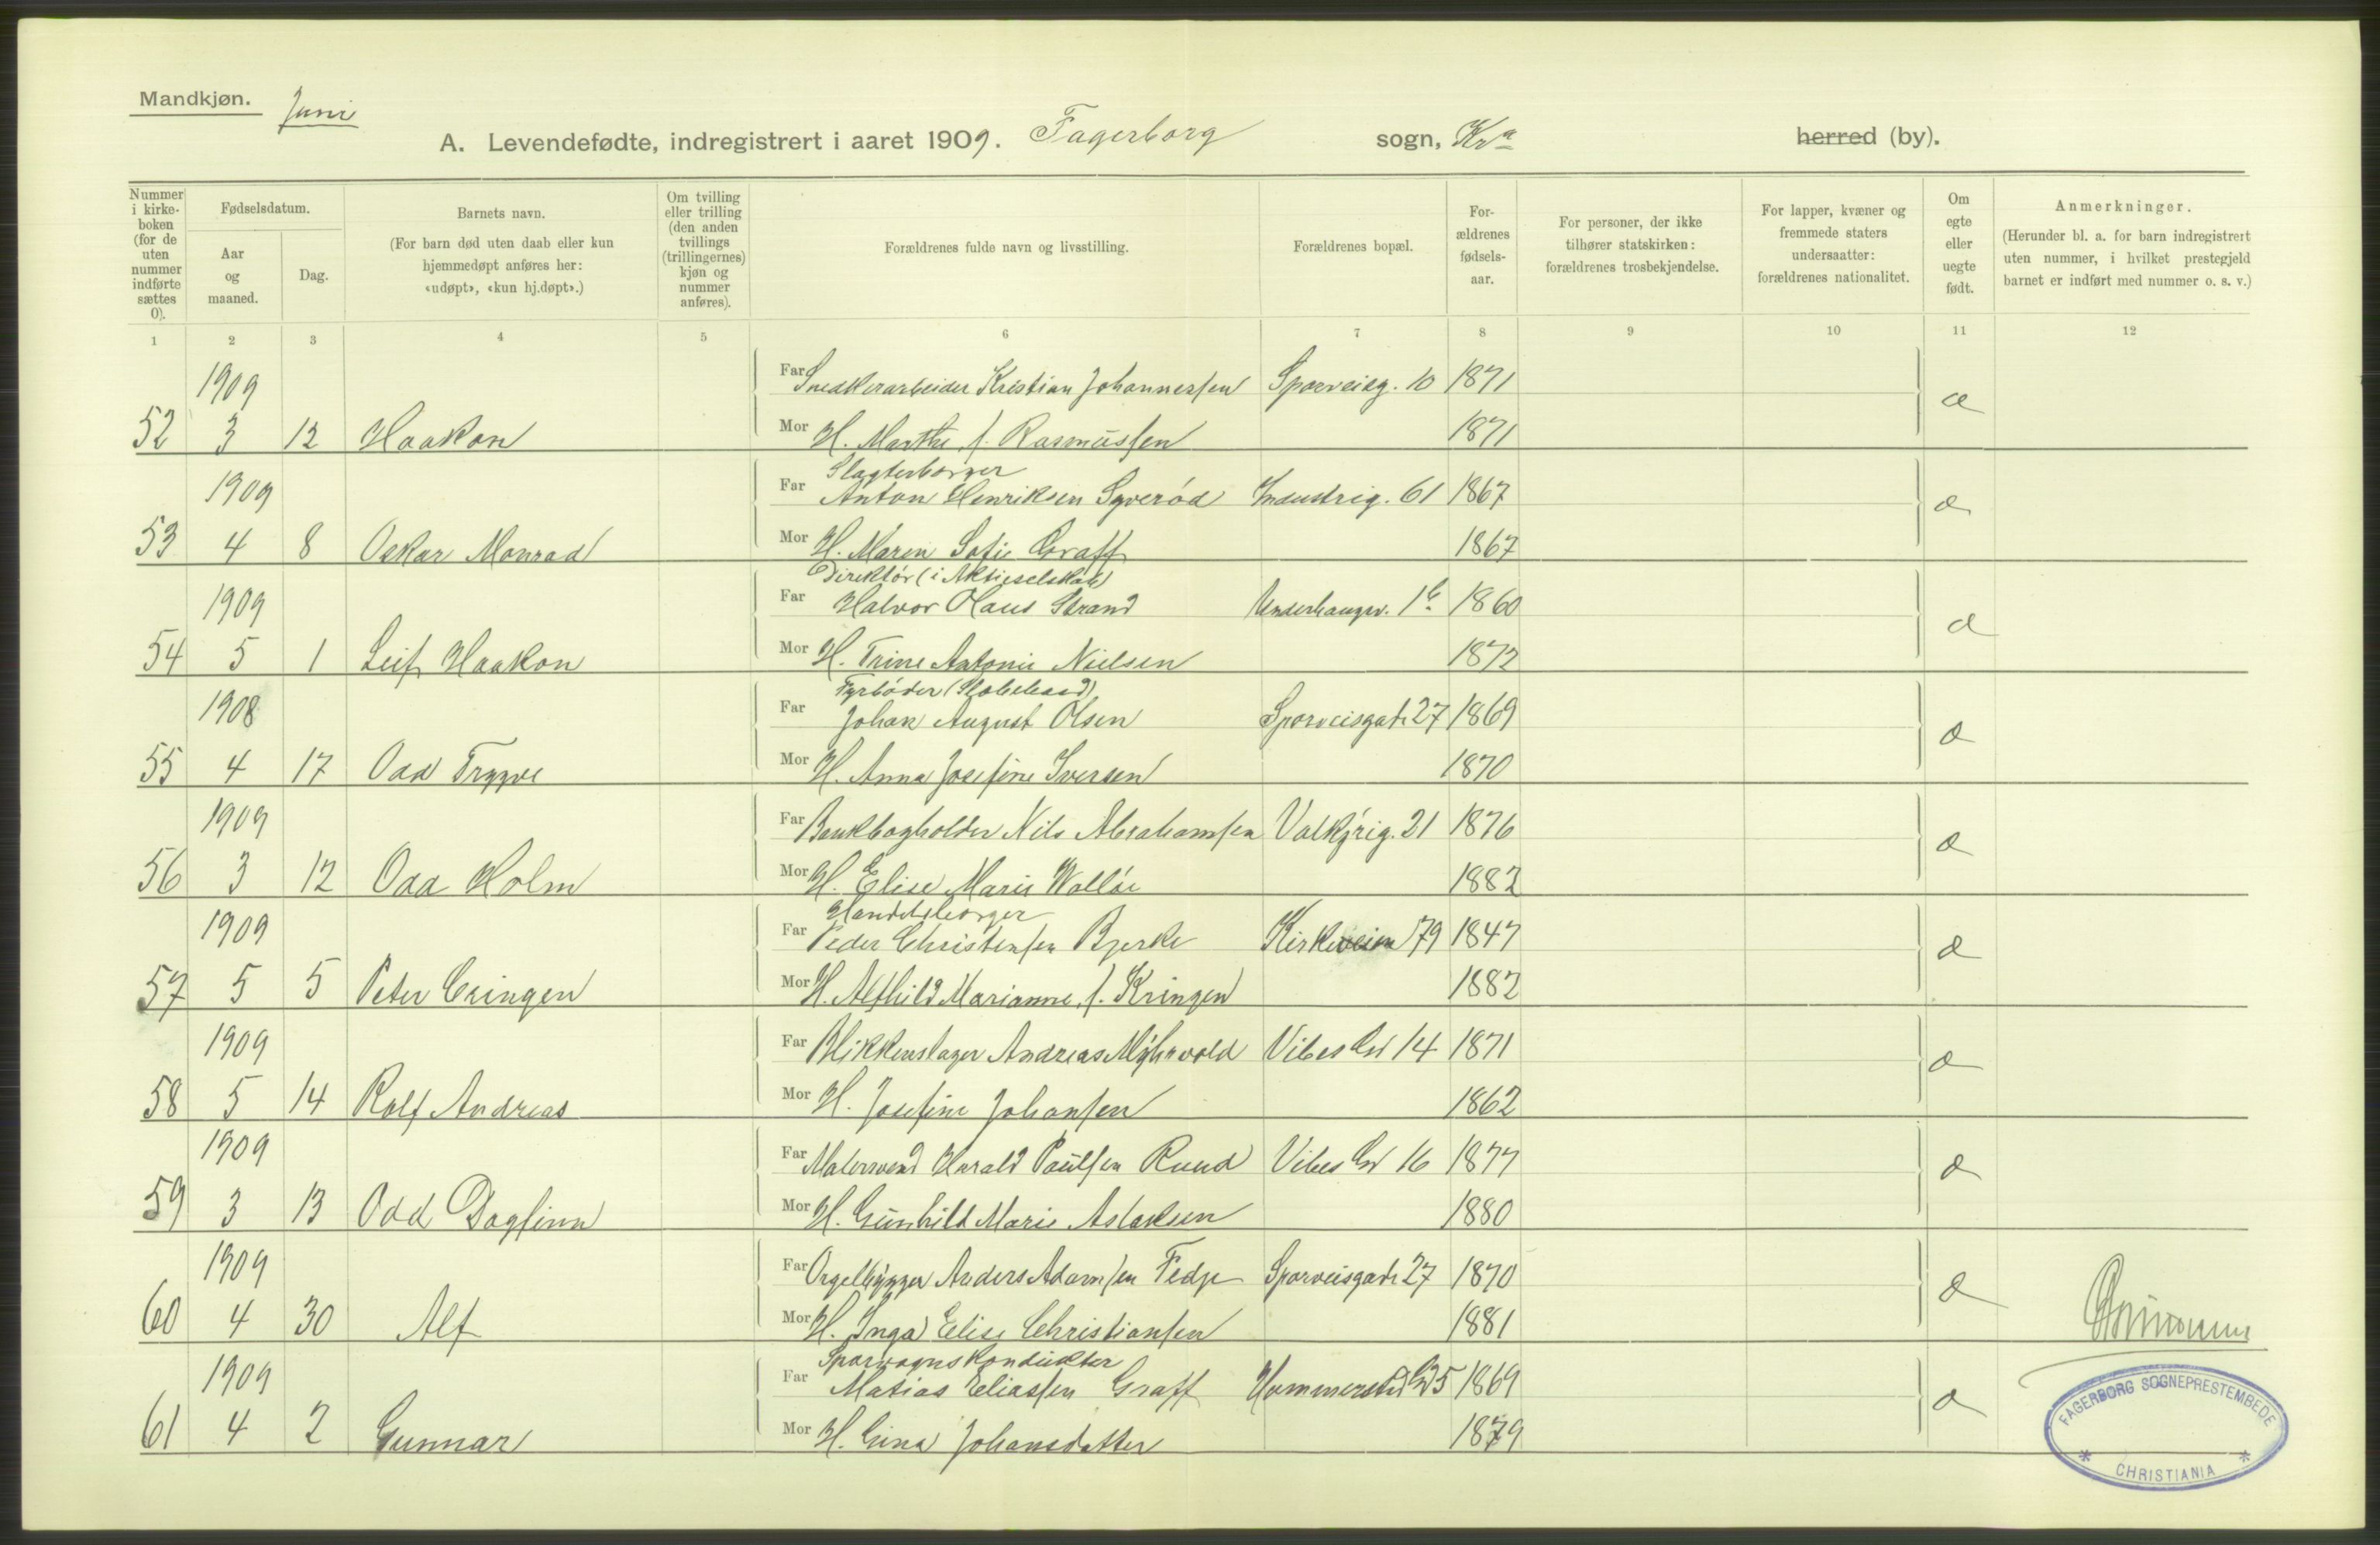 Mandkjøn. Juni
A. Levendefødte, indregistrert i aaret 1909. Fagerborg sogn, Kra herred (by).
Nummer i kirke-boken (for de uten nummer indførte sættes 0).
Fødselsdatum.
Aar og maaned.
Dag.
Barnets navn.
(For barn død uten daab eller kun hjemmedøpt anføres her: «udøpt», «kun hj.døpt».)
Om tvilling eller trilling (den anden tvillings (trillingernes) kjøn og nummer anføres).
Forældrenes fulde navn og livsstilling.
Forældrenes bopæl.
For-ældrenes fødsels-aar.
For personer, der ikke tilhører statskirken: forældrenes trosbekjendelse.
For lapper, kvæner og fremmede staters undersaatter: forældrenes nationalitet.
Om egte eller uegte født.
Anmerkninger.
(Herunder bl. a. for barn indregistrert uten nummer, i hvilket prestegjeld barnet er indført med nummer o. s. v.)
1 2 3 4 5 6 7 8 9 10 11 12
1909 Far Snedkerarbeider Kristian Johannessen Sporveisg. 10 1871
52 3 12 Haakon Mor H. Marthe f. Rasmussen 1871 æ
Slagterborger
1909 Far Anton Henriksen Syverød Industrig. 61 1867
53 4 8 Oskar Monrad Mor H. Maren Sofie Graff 1867 æ
Direktør (i Aktieselskab)
1909 Far Halvor Olaus Strand Underhaugsv. 1b 1860
54 5 1 Leif Haakon Mor H. Trine Antonie Nielsen 1872 æ
Fyrbøder
1908 Far Johan August Olsen Sporveisgade 27 1869
55 4 17 Odd Trygve Mor H. Anna Josefine Iversen 1870 æ
1909 Far Bankbogholder Nils Abrahamsen Valkyrig. 21 1876
56 3 12 Odd Holm Mor H. Elise Marie Walløe 1882 æ
Handelsborger
1909 Far Peder Christensen Bjerke Kirkeveien 79 1847
57 5 5 Peter Cringen Mor H. Alfhild Marianne f. Kringen 1882 æ
1909 Far Blikkenslager Andreas Myhrvold Vibes Gd 14 1871
58 5 14 Rolf Andreas Mor H. Josefine Johansen 1862 æ
1909 Far Malersvend Harald Paulsen Ruud Vibes Gd 16 1877
59 3 13 Odd Dagfinn Mor H. Gunhild Marie Aslaksen 1880 æ
1909 Far Orgelbygger Anders Adamsen Fedje Sporveisgade 27 1870
60 4 30 Alf Mor H. Inga Elise Christiansen 1881 æ
Sporvognskonduktør
1909 Far Matias Eliassen Graff Hammerstad Gd 5 1869
61 4 2 Gunnar Mor H. Gina Johansdatter 1879 æ
FAGERBORG SOGNEPRESTEMBEDE
* CHRISTIANIA *